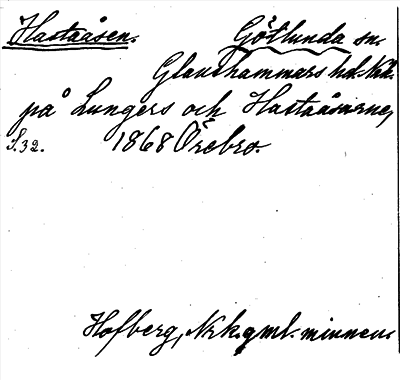 Hastaåsen. Götlunda sn.
Glanshammars hd. Nrk.
på Lungers och Hastaåsarne,
S. 32. 1868 Örebro.
Hofberg, Nrk. gml. minnen